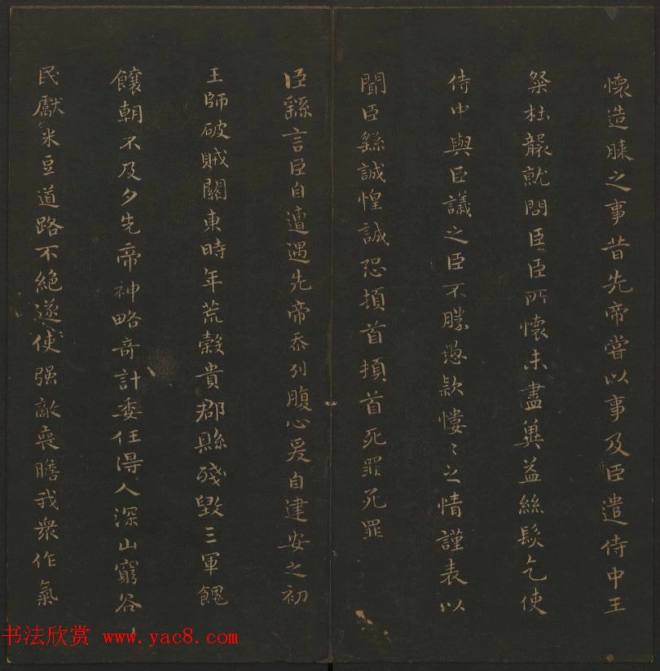 懷造膝之事昔先帝嘗以事及臣遣侍中王
粲杜襲就問臣臣所懷未盡冀益絲髮乞使
侍中與臣議之臣不勝愚款慺〻之情謹表以
聞臣繇誠惶誠恐頓首頓首死罪死罪
臣繇言臣自遭遇先帝忝列腹心爰自建安之初
王師破賊關東時年荒穀貴郡縣殘毀三軍餽
饟朝不及夕先帝神略奇計委任得人深山窮谷
民獻米豆道路不絕遂使强敵喪膽我衆作氣
书法欣赏 www.yac8.com